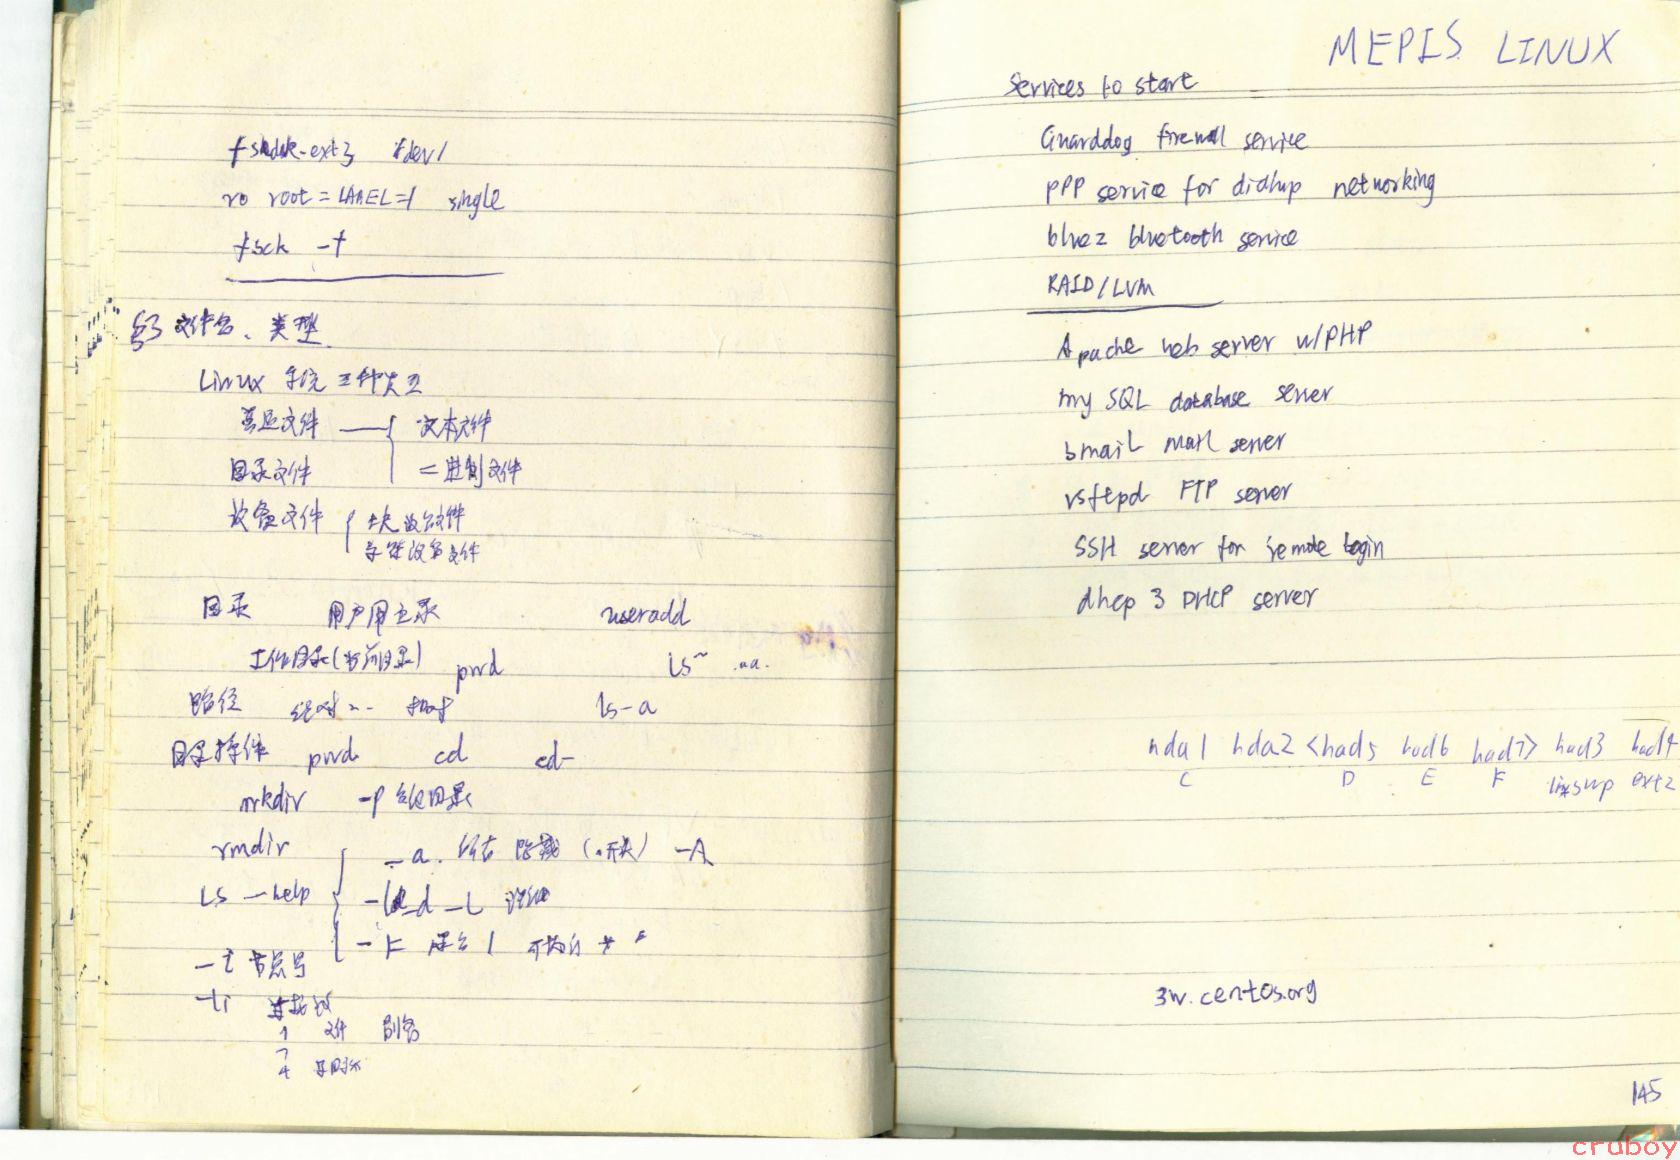 ro root=LABEL=/ single
fsck -f
§3 文件名、类型
Linux 系统三种类型
普通文件 文本文件
目录文件 二进制文件
设备文件 块设备文件
字符设备文件
目录 用户用主录 useradd
工作目录(当前目录) pwd ls~
路径 绝对 ls-a
目录操作 pwd cd cd-
mkdir -p
rmdir -a. 所有隐藏(.开头) -A
ls --help -d -L
-F
-i 节点号
-li 连接数
1 文件 别名
4 子目录
MEPIS LINUX
Services to start
Guarddog firewall service
PPP service for dialup networking
bluez bluetooth service
RAID/LVM
Apache web server w/PHP
my SQL database server
smail mail server
vsftpd FTP server
SSH server for remote login
dhcp 3 DHCP server
hda1 hda2 <had5 had6 had7> had3 had4
C D E F linxswp ext2
3w.centos.org
145
cruboy